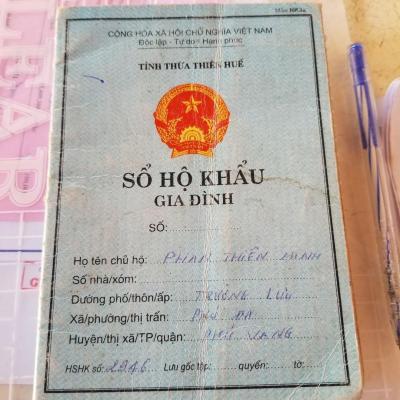 Mẫu NK3a
CỘNG HÒA XÃ HỘI CHỦ NGHĨA VIỆT NAM
Độc lập - Tự do - Hạnh phúc
TỈNH THỪA THIÊN HUẾ
SỔ HỘ KHẨU
GIA ĐÌNH
SỐ:
Họ tên chủ hộ: PHAN THIÊN MINH
Số nhà/xóm:
Đường phố/thôn/ấp: TRƯỜNG LƯU
Xã/phường/thị trấn: PHÚ ĐA
Huyện/thị xã/TP/quận: PHÚ VANG
HSHK số: 2946 Lưu góc tập: quyển: tờ: